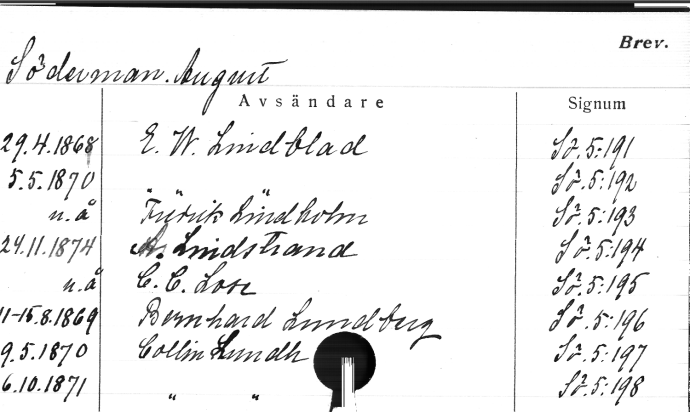 Brev.
Söderman. August
Avsändare Signum
29.4.1868 E. W. Lindblad Sö. 5:191
5.5.1870 " " Sö. 5:192
u.å Fredrik Lindholm Sö. 5:193
24.11.1874 A. Lindstrand Sö. 5:194
u.å C. C. Lose Sö. 5:195
11-15.8.1869 Bernhard Lundberg Sö. 5:196
9.5.1870 Collin Lundh Sö. 5:197
6.10.1871 " " Sö. 5:198